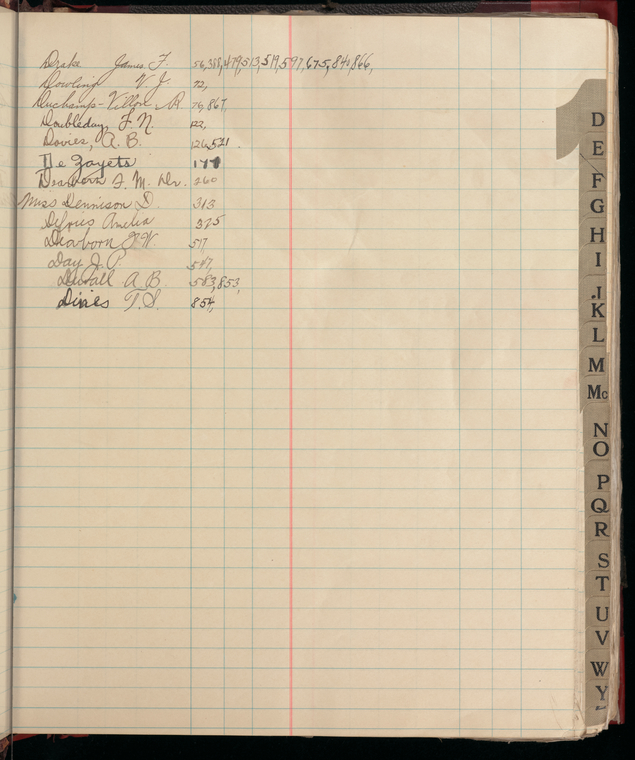 Drake James F. 56,388,479,513,519,597,675,840,866,
Dowling V. J. 72,
Duchamp-Villon R. 76,867,
Doubleday, F. N. 122,
Davies, A. B. 126,521.
De Zayets
Dearborn F. M. Dr. 260
Miss Dennison D. 313
Amelia 375
Dearborn 517,
Day J. P. 547,
Duvall A B. 583,853,
Dines T. S. 854,
D
E
F
G
H
I
J
K
L
M
Mc
N
O
P
Q
R
S
T
U
V
W
Y